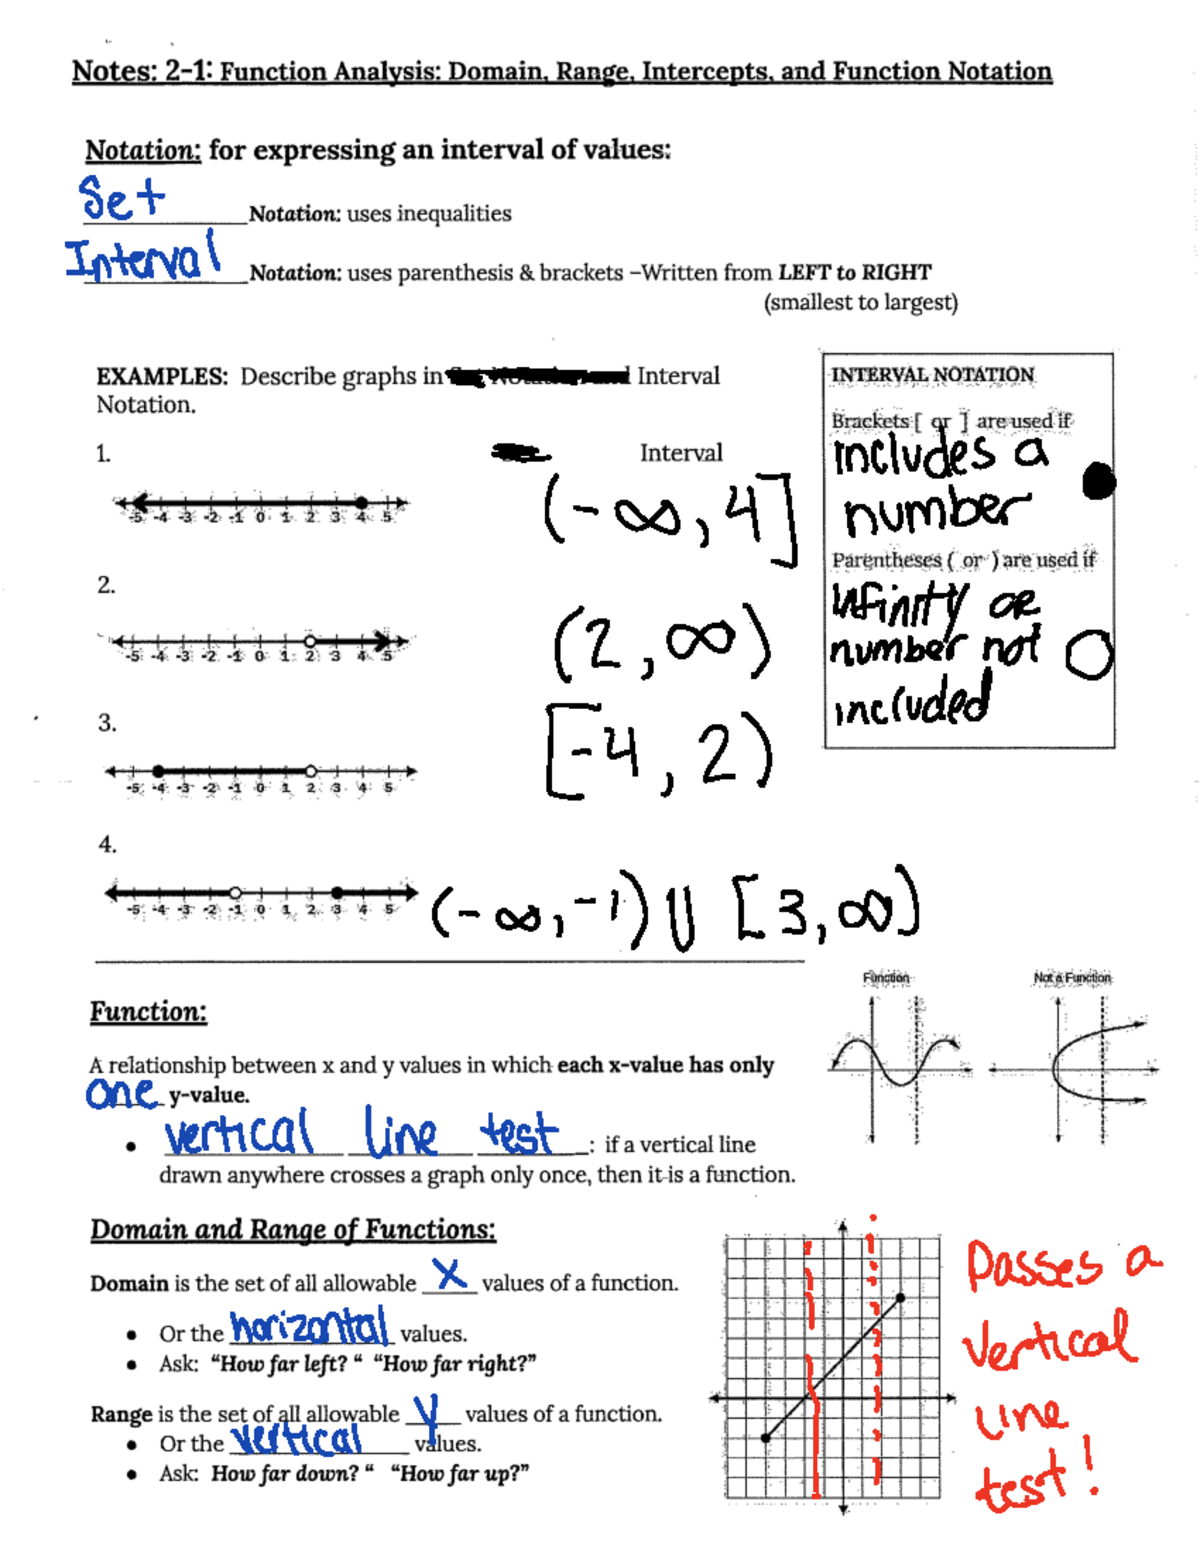 Notes: 2-1: Function Analysis: Domain, Range, Intercepts, and Function Notation
Notation: for expressing an interval of values:
Set Notation: uses inequalities
Interval Notation: uses parenthesis & brackets –Written from LEFT to RIGHT
(smallest to largest)
EXAMPLES: Describe graphs in Interval
Notation.
1. Interval
-5 -4 -3 -2 -1 0 1 2 3 4 5
(-∞, 4]
2.
-5 -4 -3 -2 -1 0 1 2 3 4 5
(2, ∞)
3.
-5 -4 -3 -2 -1 0 1 2 3 4 5
[-4, 2)
4.
-5 -4 -3 -2 -1 0 1 2 3 4 5
(-∞, -1) U [3, ∞)
INTERVAL NOTATION
Brackets [ or ] are used if
includes a
number
Parentheses ( or ) are used if
infinity or
number not
included
Function:
A relationship between x and y values in which each x-value has only
one y-value.
• vertical line test: if a vertical line
drawn anywhere crosses a graph only once, then it is a function.
Function
Not a Function
Domain and Range of Functions:
Domain is the set of all allowable x values of a function.
• Or the horizontal values.
• Ask: “How far left? “ “How far right?”
Range is the set of all allowable y values of a function.
• Or the vertical values.
• Ask: How far down? “ “How far up?”
Passes a
vertical
line
test!